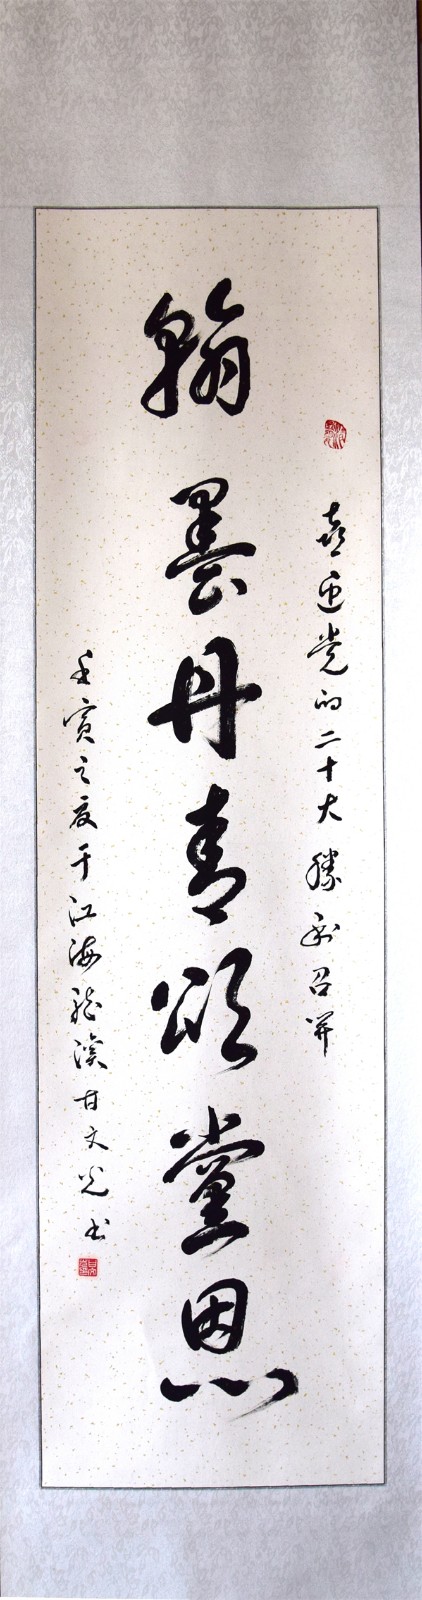 喜迎党的二十大胜利召开
翰墨丹青颂黨恩
壬寅之夏于江海龙溪甘文光书